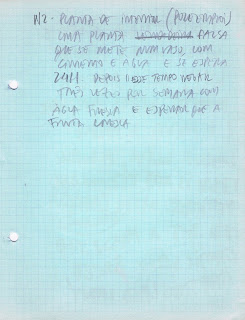 Nº2 - PLANTA DE INTERIOR (POR EXEMPLO)
UMA PLANTA FALSA
QUE SE METE NUM VASO, COM
CIMENTO E ÁGUA E SE ESPERA
24H. DEPOIS DESSE TEMPO REGAR
TRÊS VEZES POR SEMANA COM
ÁGUA FRESCA E ESPERAR QUE A
PLANTA CRESÇA